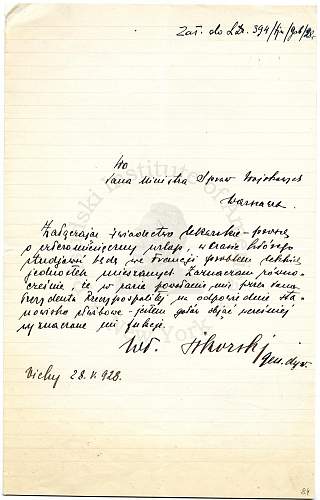 Zał. do L.dz. 394/
Do
Pana Ministra Spraw Wojskowych
Warszawa.
Załączając świadectwo lekarskie – proszę
o półtoramiesięczny urlop, w czasie którego
studjował będę we Francji problem lekkich
jednostek mieszanych. Zaznaczam równo-
cześnie, że w razie powołania mnie przez Pana
Prezydenta Rzeczypospolitej na odpowiednie sta-
nowisko służbowe – jestem gotów objąć wcześniej
wyznaczone mi funkcje.
Wł. Sikorski
gen. dyw.
Vichy 28. V 928.
84